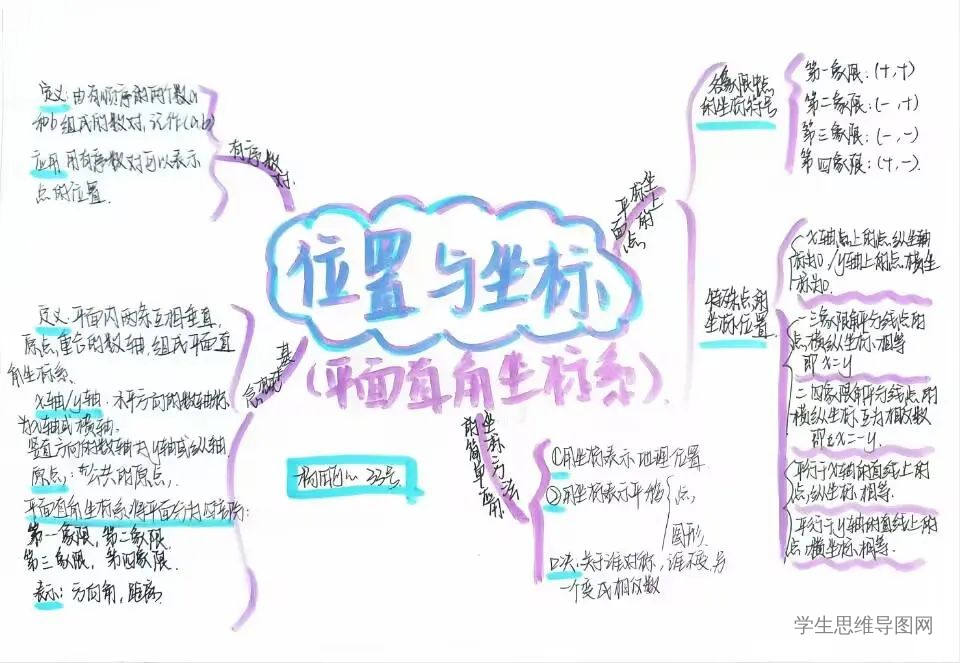 位置与坐标
(平面直角坐标系)
有序数对
定义:由有顺序的两个数a
和b组成的数对,记作(a,b)
应用 用有序数对可以表示
点的位置.
基本概念
定义:平面内两条互相垂直,
原点重合的数轴,组成平面直
角坐标系.
x轴/y轴:水平方向的数轴称
为x轴或横轴.
竖直方向的数轴为y轴或纵轴
原点:公共的原点,
平面直角坐标系将平面分为四部分:
第一象限,第二象限,
第三象限,第四象限.
表示:方向角,距离.
平面
坐标上的点
各象限中点
的坐标符号
第一象限:(+,+)
第二象限:(-,+)
第三象限:(-,-)
第四象限:(+,-).
特殊点的
坐标位置
x轴点上的点纵坐轴
标为0,y轴上的点横坐
标为0.
一三象限角平分线点的
点横纵坐标相等
即x=y
二四象限角平分线点的
横纵坐标互为相反数
即x=-y.
平行于x轴的直线上的
点,纵坐标相等.
平行于y轴的直线上的
点,横坐标相等.
坐标方法
的简单应用
①用坐标表示地理位置
②用坐标表示平移
点,
图形.
口决:关于谁对称,谁不变,另
一个变成相反数
33号
学生思维导图网